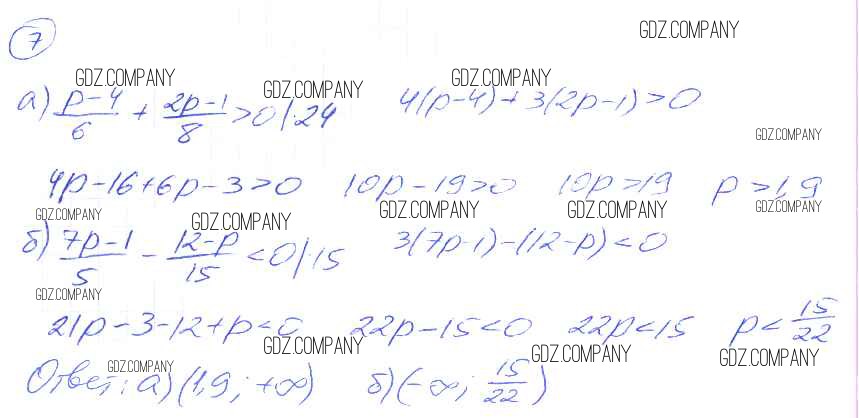 7
GDZ.COMPANY
GDZ.COMPANY GDZ.COMPANY GDZ.COMPANY
а) p-4/6 + 2p-1/8 >0 |·24 4(p-4)+3(2p-1)>0
GDZ.COMPANY
4p-16+6p-3>0 10p-19>0 10p>19 p>1,9
GDZ.COMPANY GDZ.COMPANY GDZ.COMPANY GDZ.COMPANY GDZ.COMPANY
б) 7p-1/5 - 12-p/15 <0 |·15 3(7p-1)-(12-p)<0
GDZ.COMPANY
21p-3-12+p<0 22p-15<0 22p<15 p< 15/22
GDZ.COMPANY GDZ.COMPANY GDZ.COMPANY
GDZ.COMPANY
Ответ: а) (1,9; +∞) б) (-∞; 15/22)